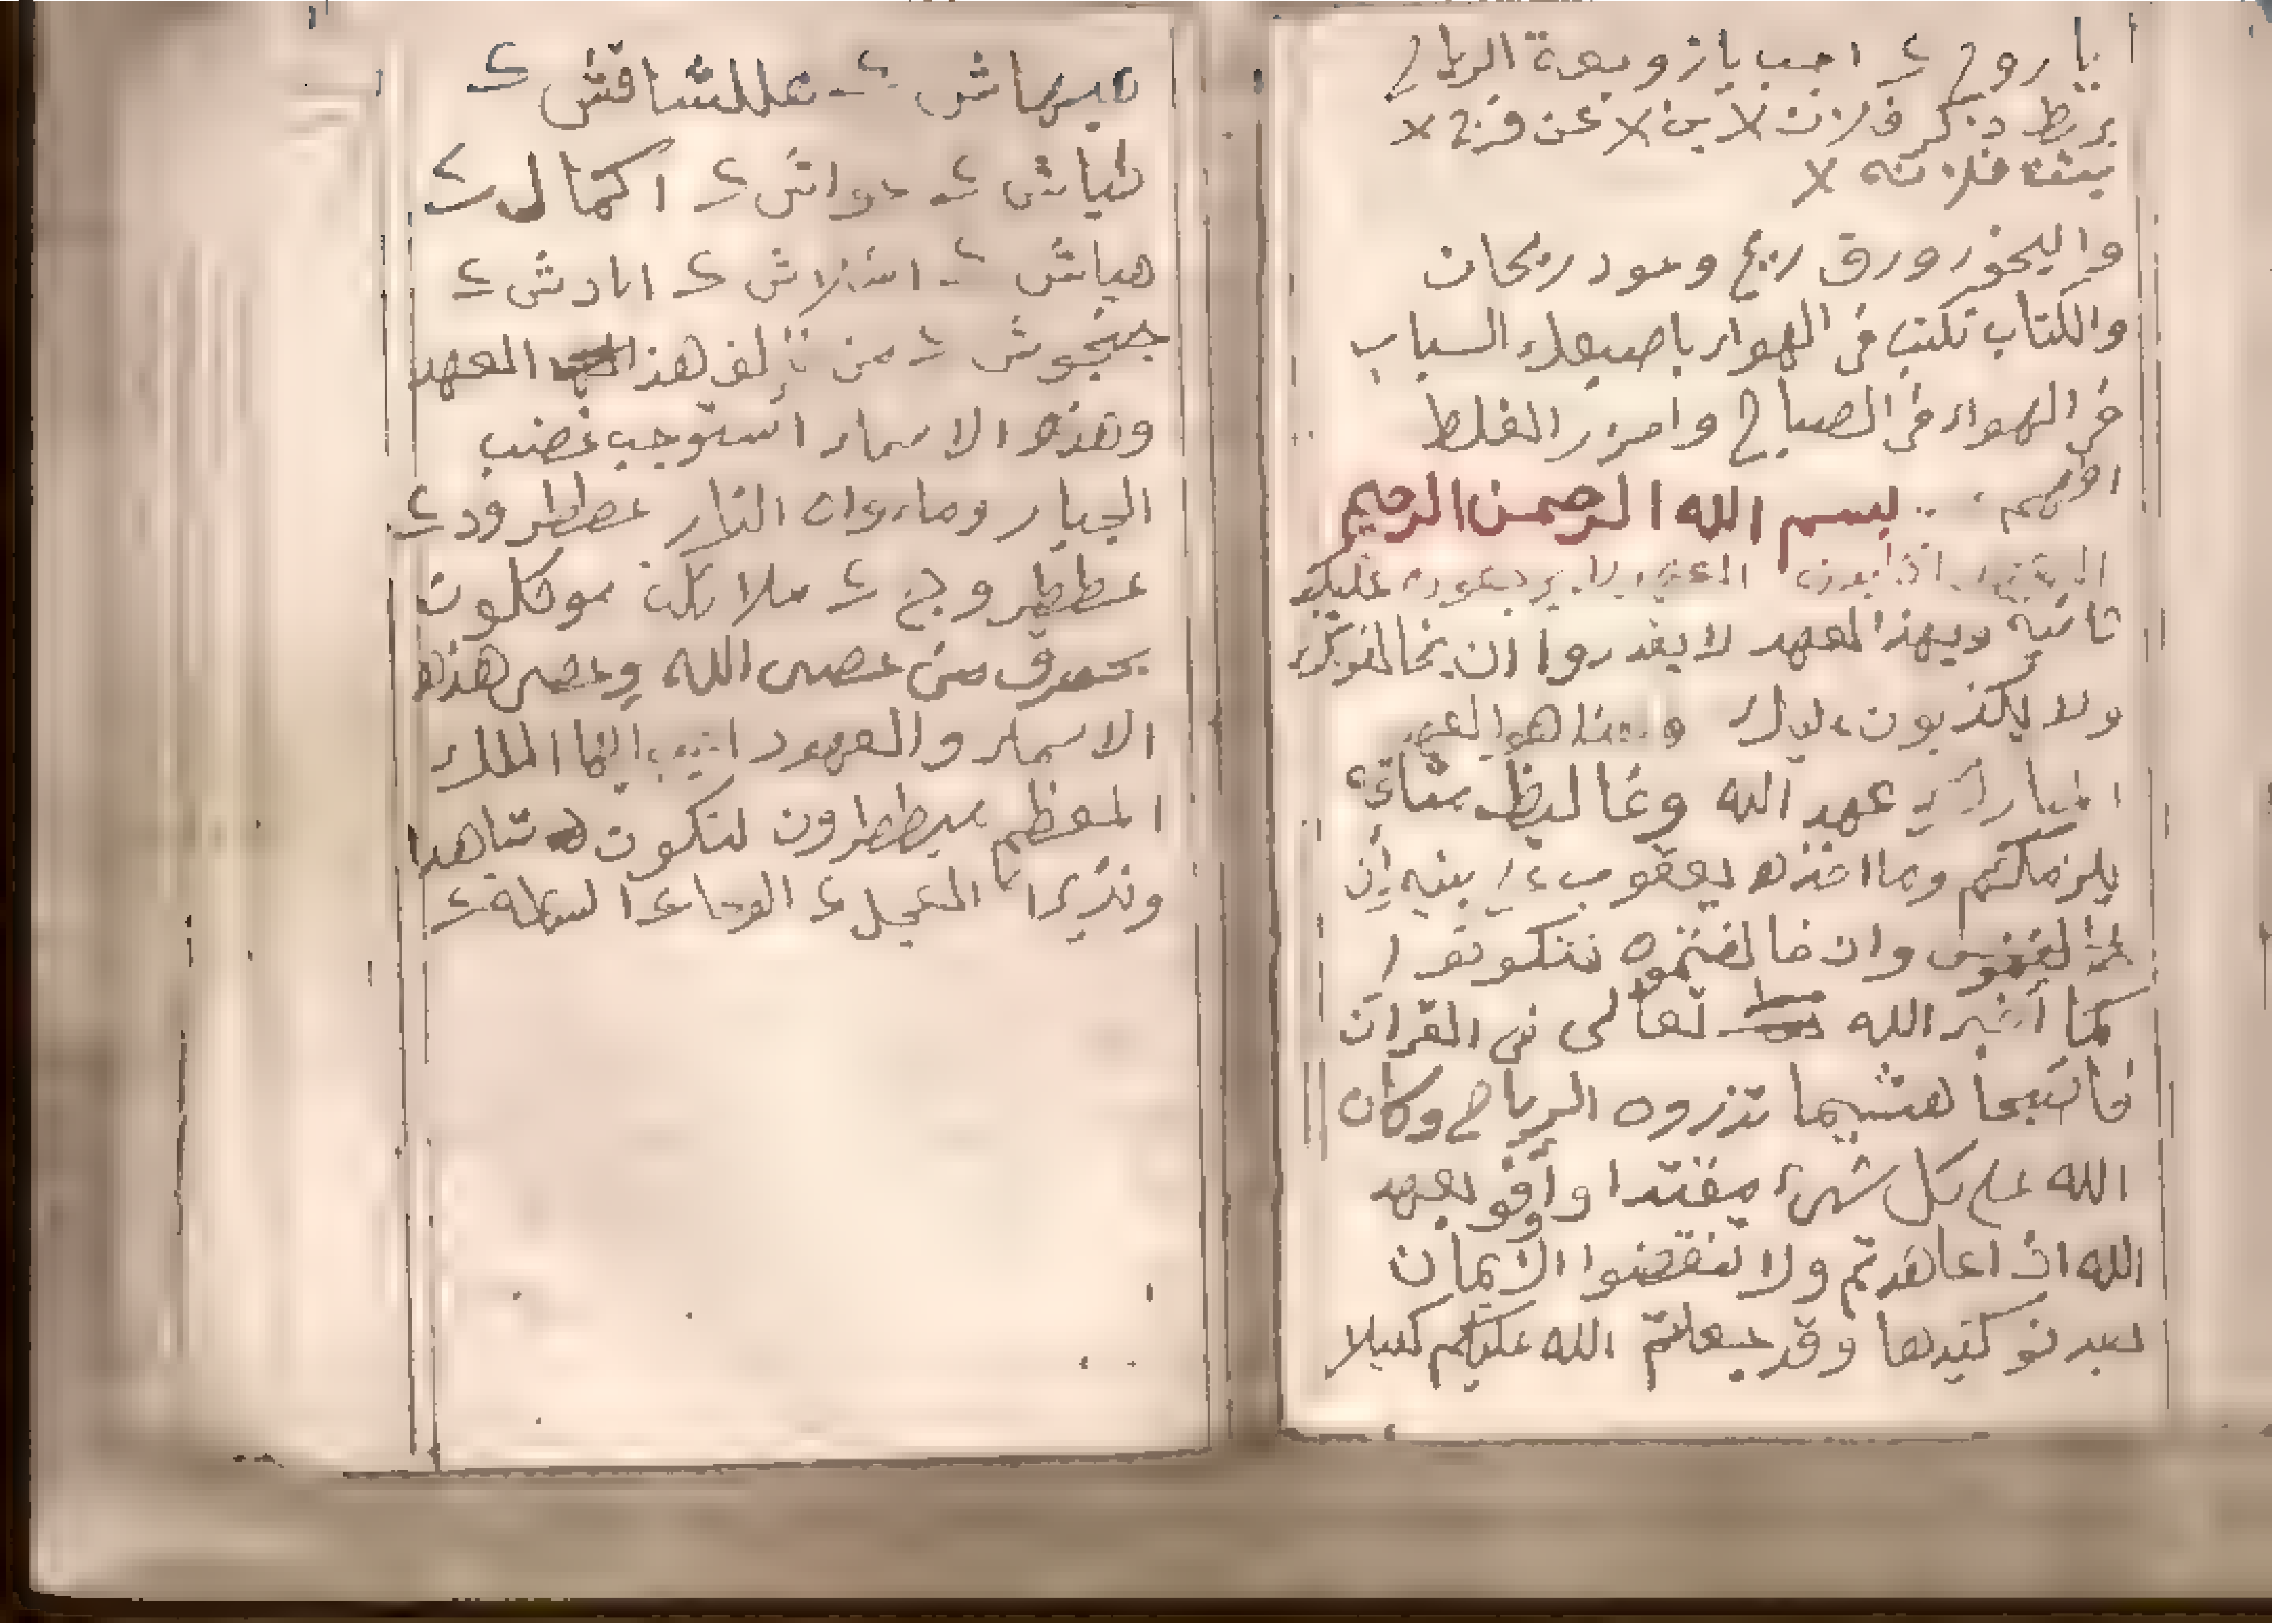 يا روح ٤ اجب يا زوبعة الرياح
بربط ذكر فلان لابن لا عن فرج لا
بنت فلانه لا
واليخور ورق رند وعود ريحان
والكتاب تكتب في الهواء باصبعك السباب
في الهواء في الصباح وامزر الغلط
افهم بسم الله الرحمن الرحيم
لا يرجعون عليك
ثانية وبهذا العهد لا يقدروا ان يخالفوك
ولا يكذبون عليك وهذا هو العهد
المبارك عهد الله وغاليظ ميثاقه
يلزمكم وما اخذه يعقوب على بنيه ان
وان خالفتموه تتكونوا
كما أخبر الله تعالى في القرآن
فاصبحا هشيما تذروه الرياح وكان
الله على كل شيء مقتدا وافو بعهد
الله اذا عاهدتم ولا تنقضوا الأيمان
بعد توكيدها وقد جعلتم الله عليكم كفيلا
ميرهاش ٤ عللشاقش ٤
شياش ٤ دواش ٤ اكمال ٤
هياش ٤ اشلاش ٤ ادش ٤
جنجوش ٤ من تألف هذا العهد
وهذه الاسماء استوجب غضب
الجبار وماءواه النار عططرود ٤
عططروج ٤ ملائكة موكلون
بحرق من عصى الله وعصى هذه
الاسماء والعهود اجيب ايها الملك
المعظم ميططرون لتكون شاهدا
ونذيرا العجل ٤ الوحا ٤ الساعة ٤